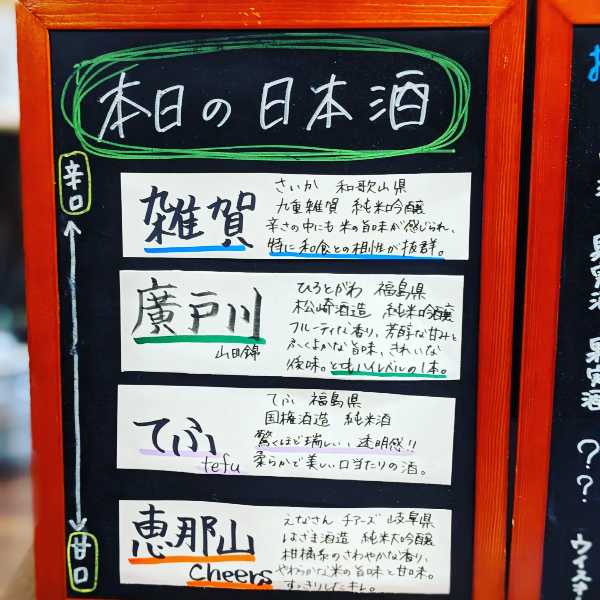 本日の日本酒
辛口
雑賀
さいか 和歌山県
九重雑賀 純米吟醸
辛さの中にも米の旨味が感じられ、
特に和食との相性が抜群。
廣戸川
山田錦
ひろとがわ 福島県
松崎酒造 純米吟醸
フルーティな香り、芳醇な甘みと
ふくよかな旨味、きれいな
後味。とてもハイレベルの1本。
てふ
tefu
てふ 福島県
国権酒造 純米酒
驚くほど瑞しい、透明感!!
柔らかで美しい口当たりの酒。
恵那山
Cheers
えなさん チアーズ 岐阜県
はざま酒造 純米大吟醸
柑橘系のさわやかな香り、
やわらかな米の旨味と甘味。
甘口
果実酒
??
ウイスキー